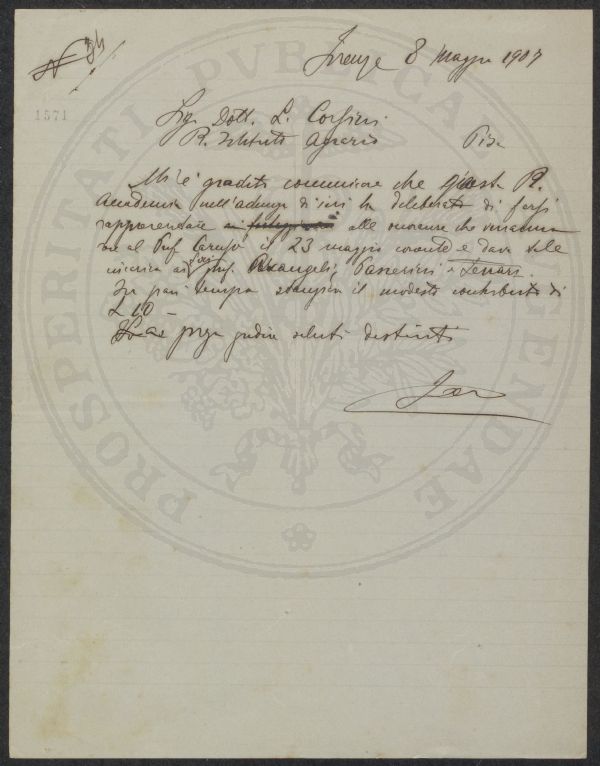 N 34
Firenze 8 Maggio 1907
1571
Sig. Dott. L.
R. Istituto Agrario Pisa
Mi è gradito comunicare che questa R.
Accademia nell'adunanza di ieri ha deliberato di farsi
rappresentare alle onoranze che verranno
al Prof. Caruso il 23 maggio corrente e dava tale
incarico ai Soci Prof. Passerini e
In pari tempo il modesto contributo di
L 10 —
prego gradire saluti distinti
PROSPERITATI PUBLICAE AUGENDAE